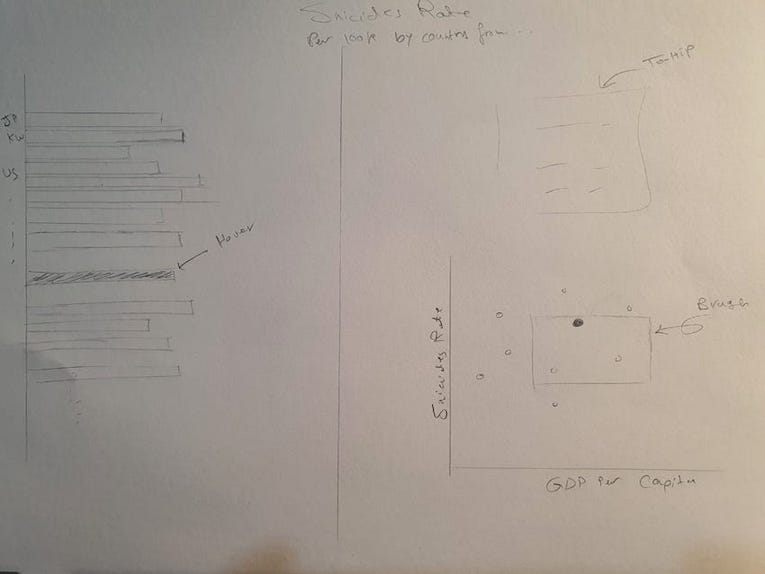 Suicides Rate
Per 100k by country from...
Tooltip
JP
KW
US
Hover
Brush
Suicides Rate
GDP Per Capita